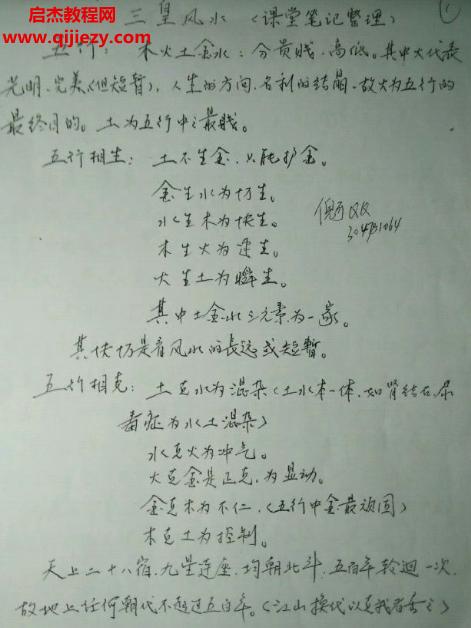 启杰教程网
www.qijiejc.com
三皇风水 (课堂笔记整理) ①
五行: 木火土金水: 分贵贱、高低。其中火代表
光明、完美(但短暂), 人生的方向、名利的结晶。故火为五行的
最终目的。土为五行中之最贱。
五行相生: 土不生金、只能护金。
金生水为切生。
水生木为快生。
木生火为速生。
火生土为瞬生。
其中土金水三元素为一家。
其快切是看风水的长远或短暂。
五行相克: 土克水为混杂(土水本一体, 如肾结石、尿
毒症为水土混杂)
水克火为冲气。
火克金是正克, 为显动。
金克木为不仁、(五行中金最顽固)
木克土为控制。
天上二十八宿、九星连座、均朝北斗、五百年轮迴一次、
故地上任何朝代不超过五百年。(江山换代以克我者